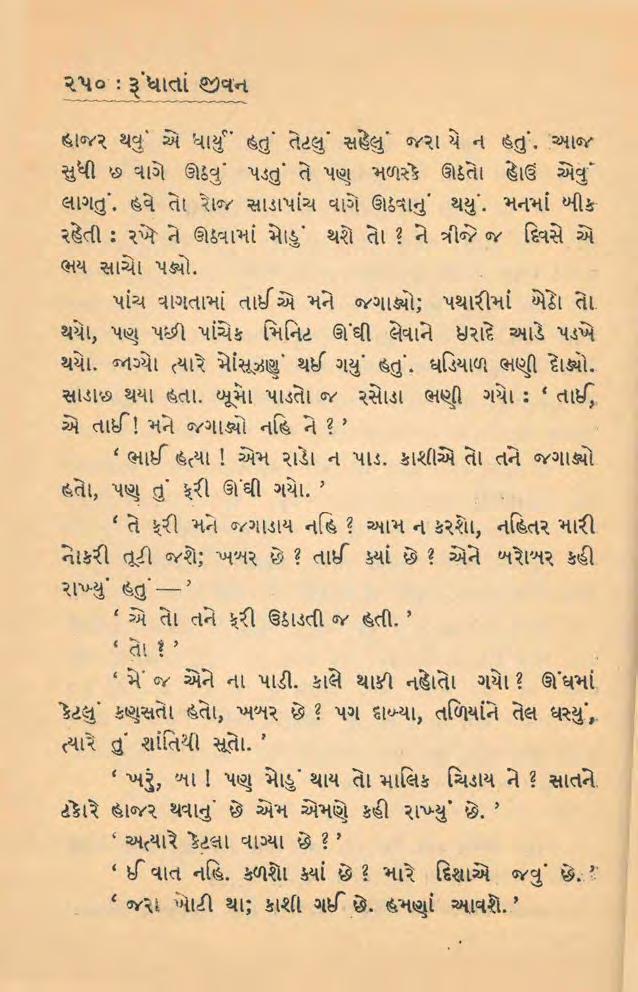 ૨૫૦ : રૂંધાતાં જીવન
હાજર થવું એ ધાર્યું હતું તેટલું સહેલું જરા યે ન હતું. આજ
સુધી છ વાગે ઊઠવું પડતું તે પણ મળસ્કે ઊઠતો હોઉં એવું
લાગતું. હવે તો રોજ સાડાપાંચ વાગે ઊઠવાનું થયું. મનમાં બીક
રહેતી : રખે ને ઊઠવામાં મોડું થશે તો ? ને ત્રીજે જ દિવસે એ
ભય સાચો પડ્યો.
પાંચ વાગતામાં તાઈએ મને જગાડ્યો; પથારીમાં બેઠો તો
થયો, પણ પછી પાંચેક મિનિટ ઊંઘી લેવાને ઇરાદે આડે પડખે
થયો. જાગ્યો ત્યારે મોંસૂઝણું થઈ ગયું હતું. ઘડિયાળ ભણી દોડ્યો.
સાડાછ થયા હતા. બૂમો પાડતો જ રસોડા ભણી ગયો : ‘ તાઈ,
એ તાઈ ! મને જગાડ્યો નહિ ને ? ’
‘ ભાઈ હત્યા ! એમ રાડો ન પાડ. કાશીએ તો તને જગાડ્યો
હતો, પણ તું ફરી ઊંઘી ગયો. ’
‘ તે ફરી મને જગાડાય નહિ ? આમ ન કરશો, નહિતર મારી
નોકરી તૂટી જશે; ખબર છે ? તાઈ ક્યાં છે ? એને બરોબર કહી
રાખ્યું હતું — ’
‘ એ તો તને ફરી ઉઠાડતી જ હતી. ’
‘ તો ? ’
‘ મેં જ એને ના પાડી. કાલે થાકી નહોતો ગયો ? ઊંઘમાં
કેટલું કણસતો હતો, ખબર છે ? પગ દાબ્યા, તળિયાંને તેલ ઘસ્યું,
ત્યારે તું શાંતિથી સૂતો. ’
‘ ખરું, બા ! પણ મોડું થાય તો માલિક ચિડાય ને ? સાતને
ટકોરે હાજર થવાનું છે એમ એમણે કહી રાખ્યું છે. ’
‘ અત્યારે કેટલા વાગ્યા છે ? ’
‘ ઈ વાત નહિ. કળશો ક્યાં છે ? મારે દિશાએ જવું છે. ’
‘ જરા ખોટી થા; કાશી ગઈ છે. હમણાં આવશે. ’